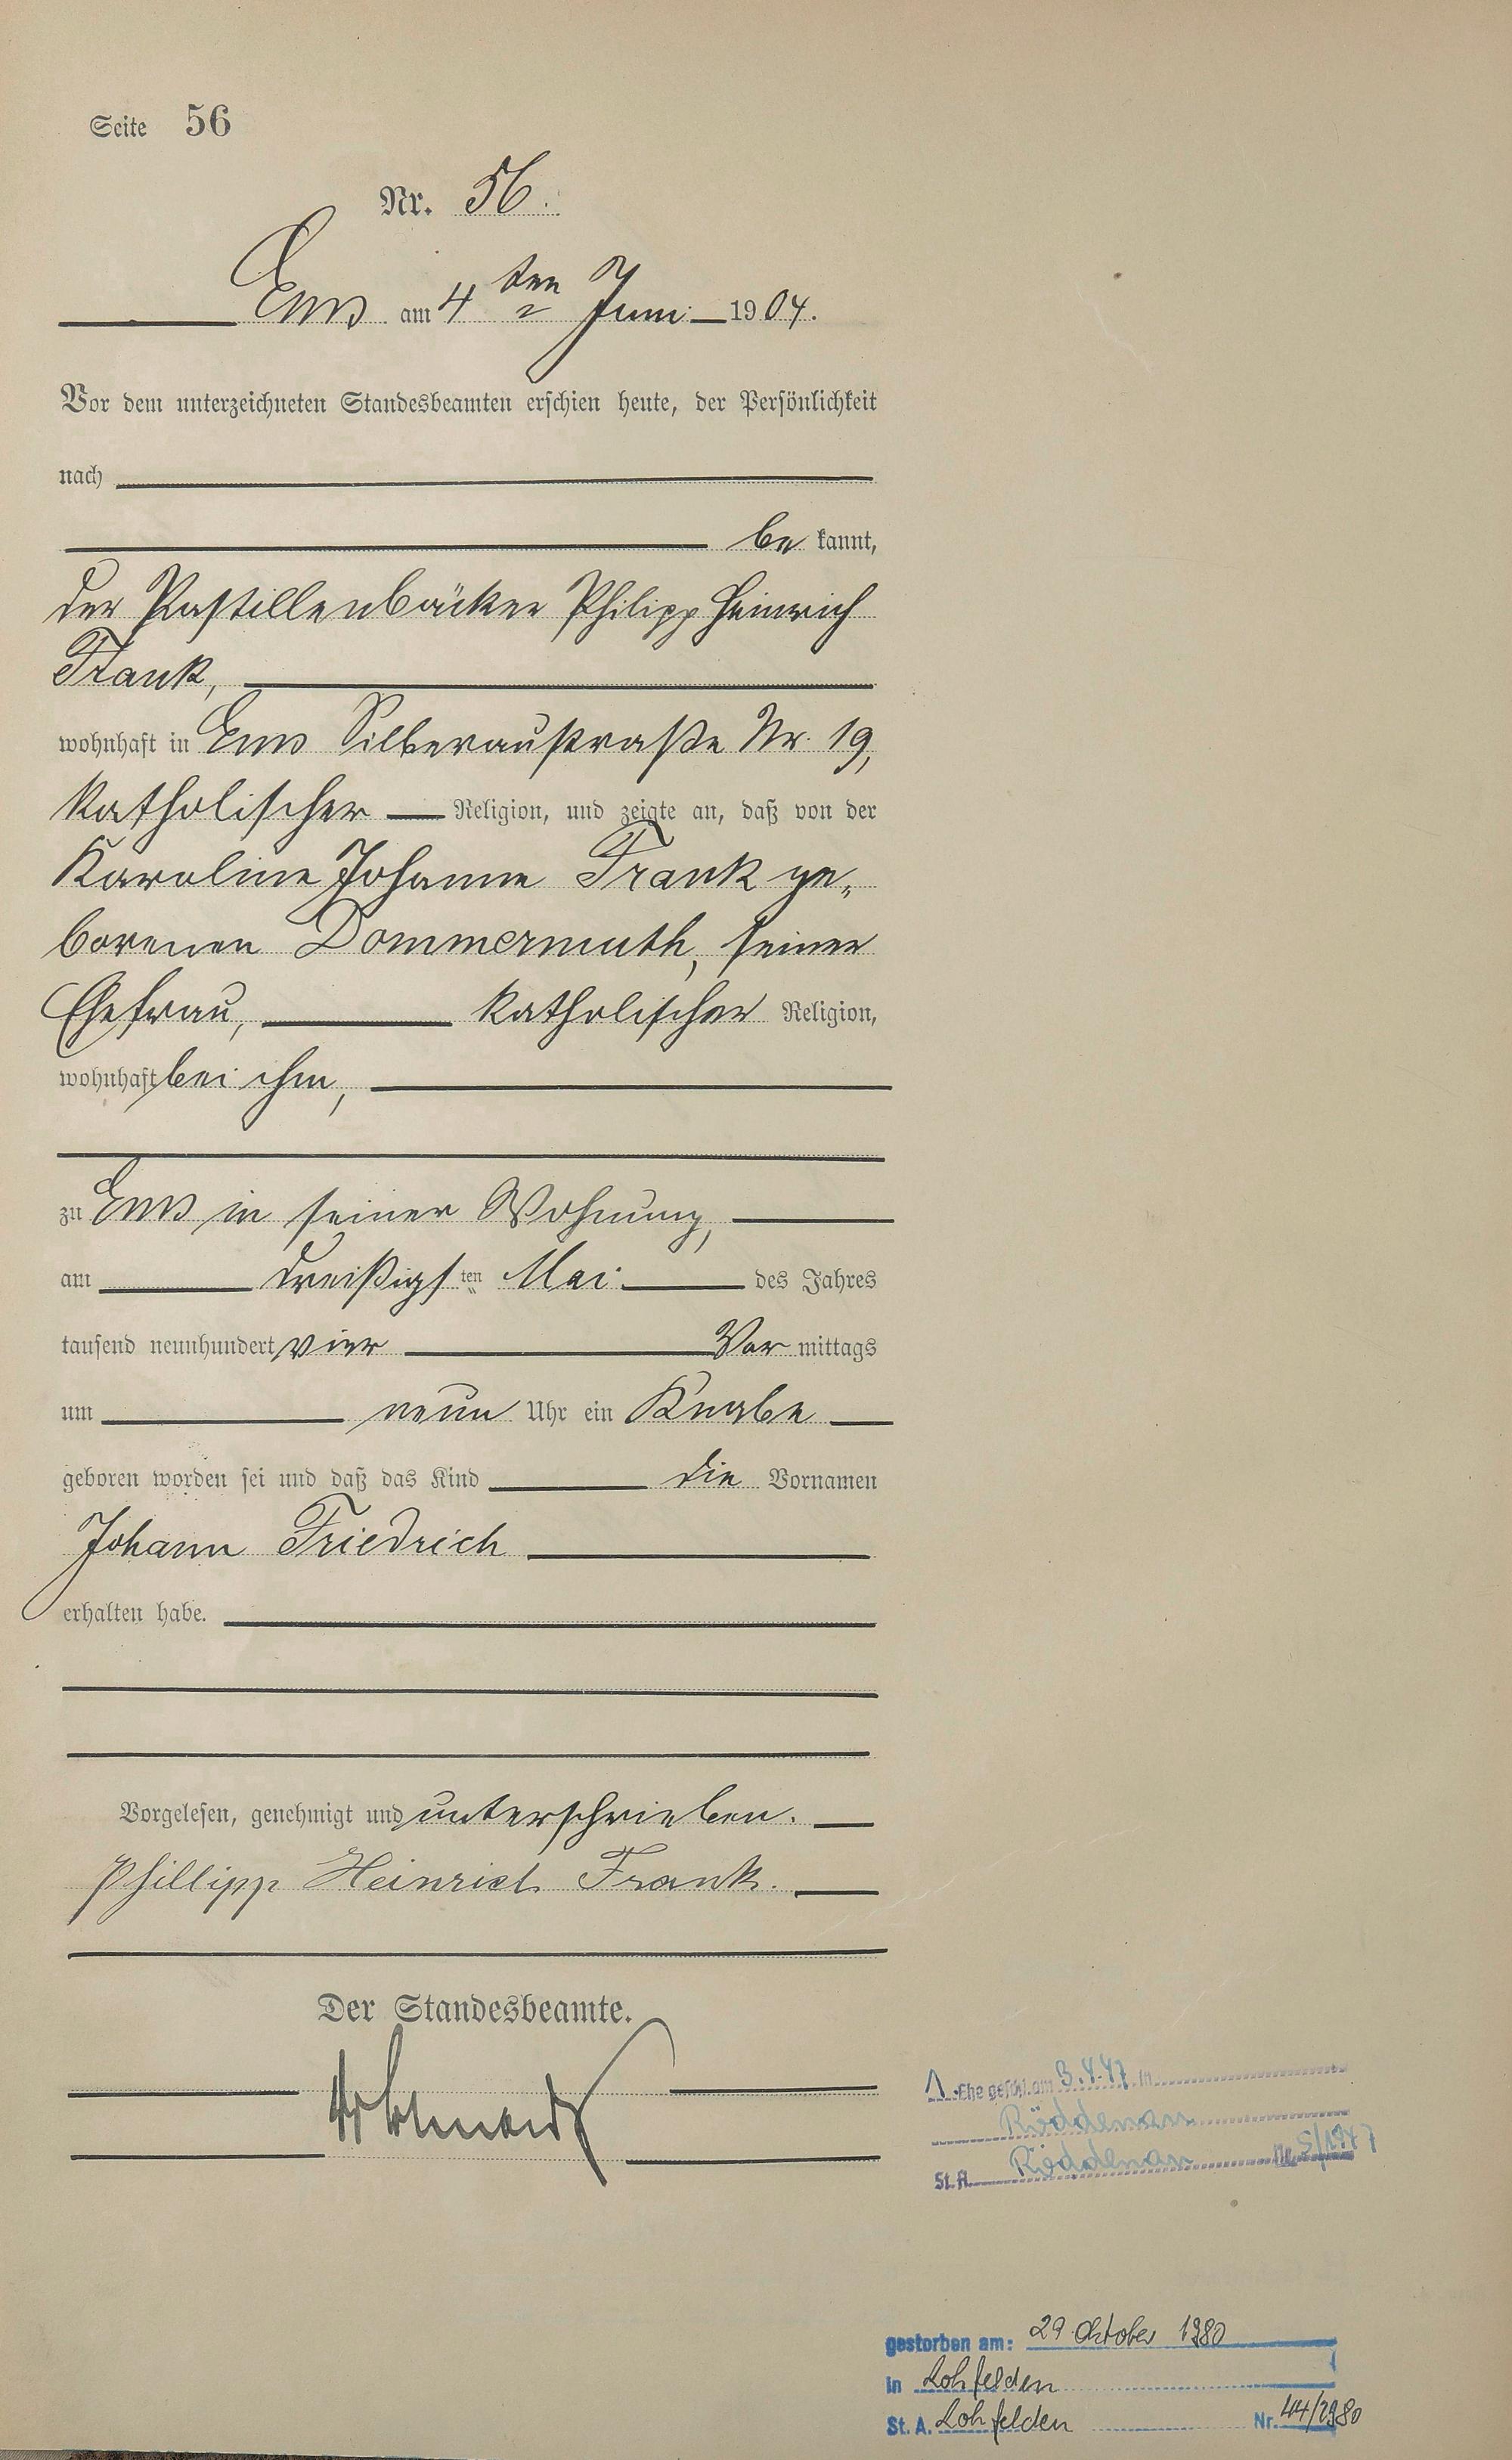 Seite 56
Nr. 56.
Ems am 4ten Juni 1904.
Vor dem unterzeichneten Standesbeamten erschien heute, der Persönlichkeit
nach
be kannt,
der Pastillenbäcker Philipp Heinrich
Frank,
wohnhaft in Ems Silberaustraße Nr. 19,
katholischer Religion, und zeigte an, daß von der
Karoline Johanna Frank ge-
borenen Dommermuth, seiner
Ehefrau, katholischer Religion,
wohnhaft bei ihm,
zu Ems in seiner Wohnung,
am dreißigsten Mai des Jahres
tausend neunhundert vier Vor mittags
um neun Uhr ein Knabe
geboren worden sei und daß das Kind die Vornamen
Johann Friedrich
erhalten habe.
Vorgelesen, genehmigt und unterschrieben.
Phillipp Heinrich Frank.
Der Standesbeamte.
1. Ehe geschl. am 3.4.47 in
Röddenau
St. A. Röddenau Nr. 5/1947
gestorben am: 29. Oktober 1980
in Lohfelden
St. A. Lohfelden Nr. 44/1980